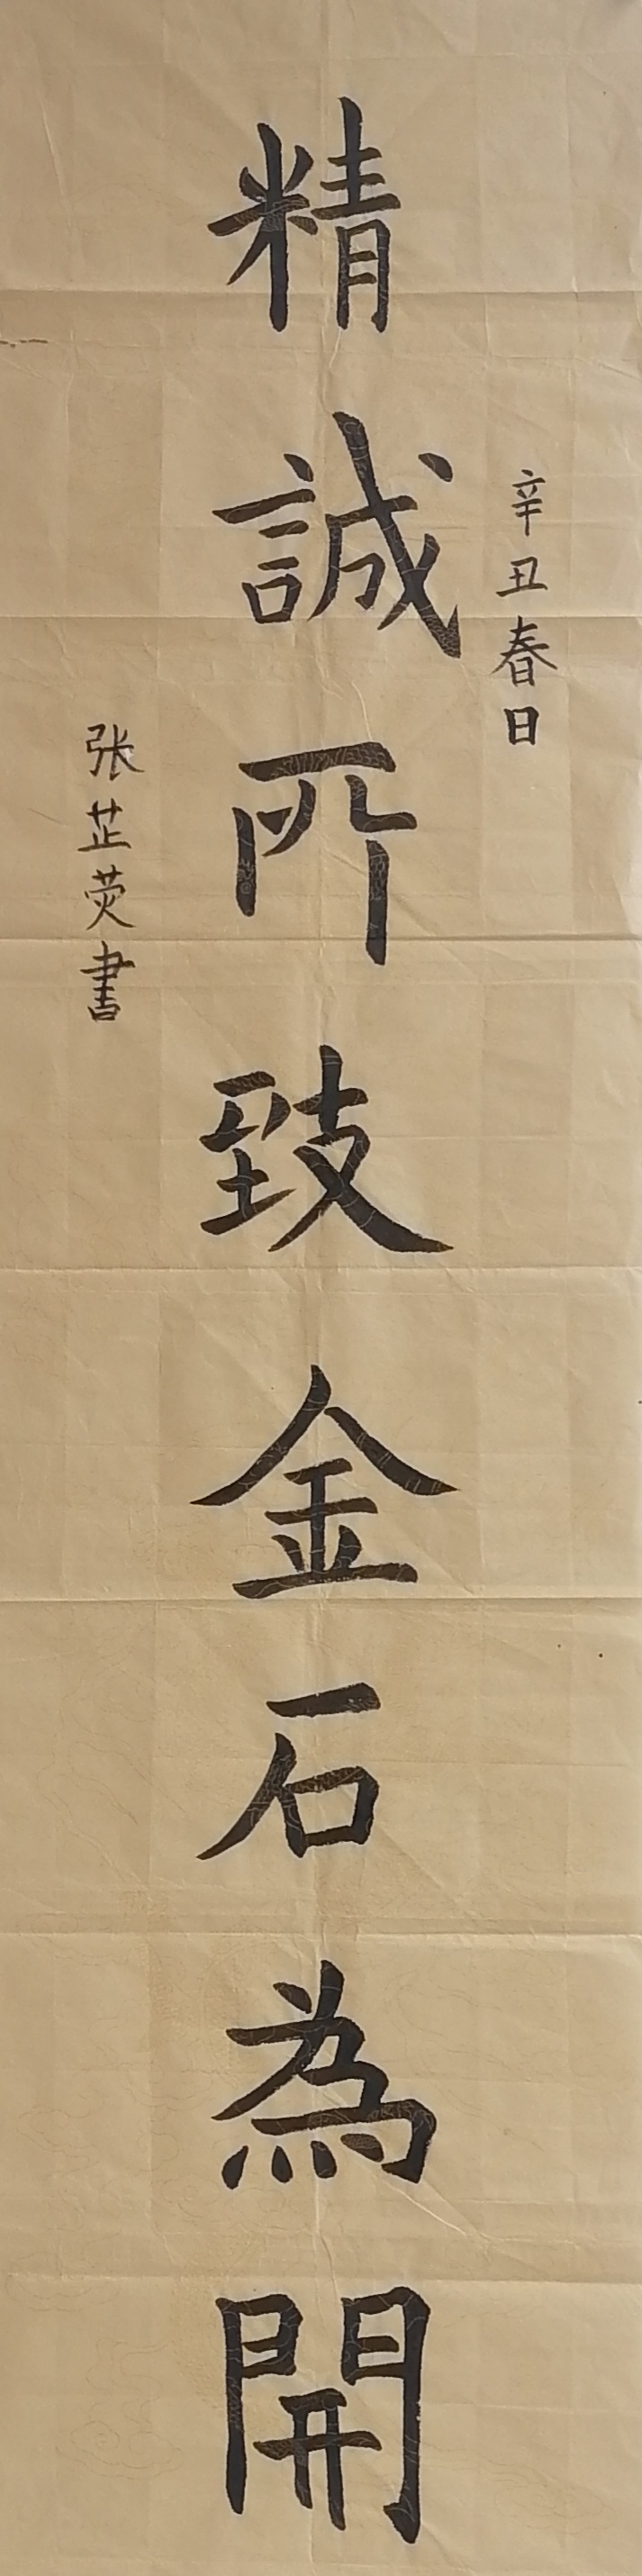 辛丑春日
精誠所致金石為開
张芷荧書